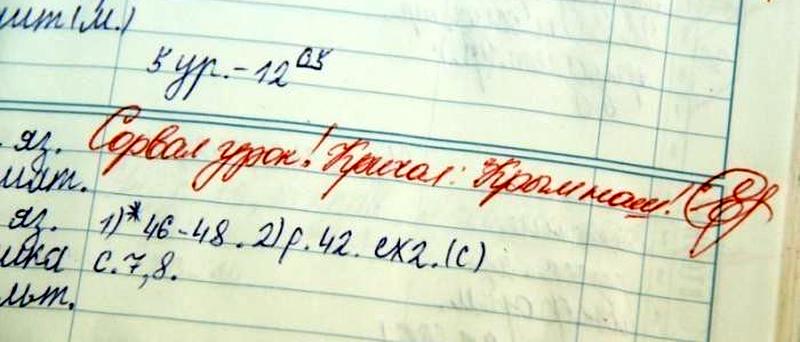 лит(м.)
5 ур. - 12 05
яз. Сорвал урок! Кричал: Крым наш!
мат.
яз. 1)* 46-48. 2) p. 42. ex2. (c)
ика с. 7, 8.
льт.